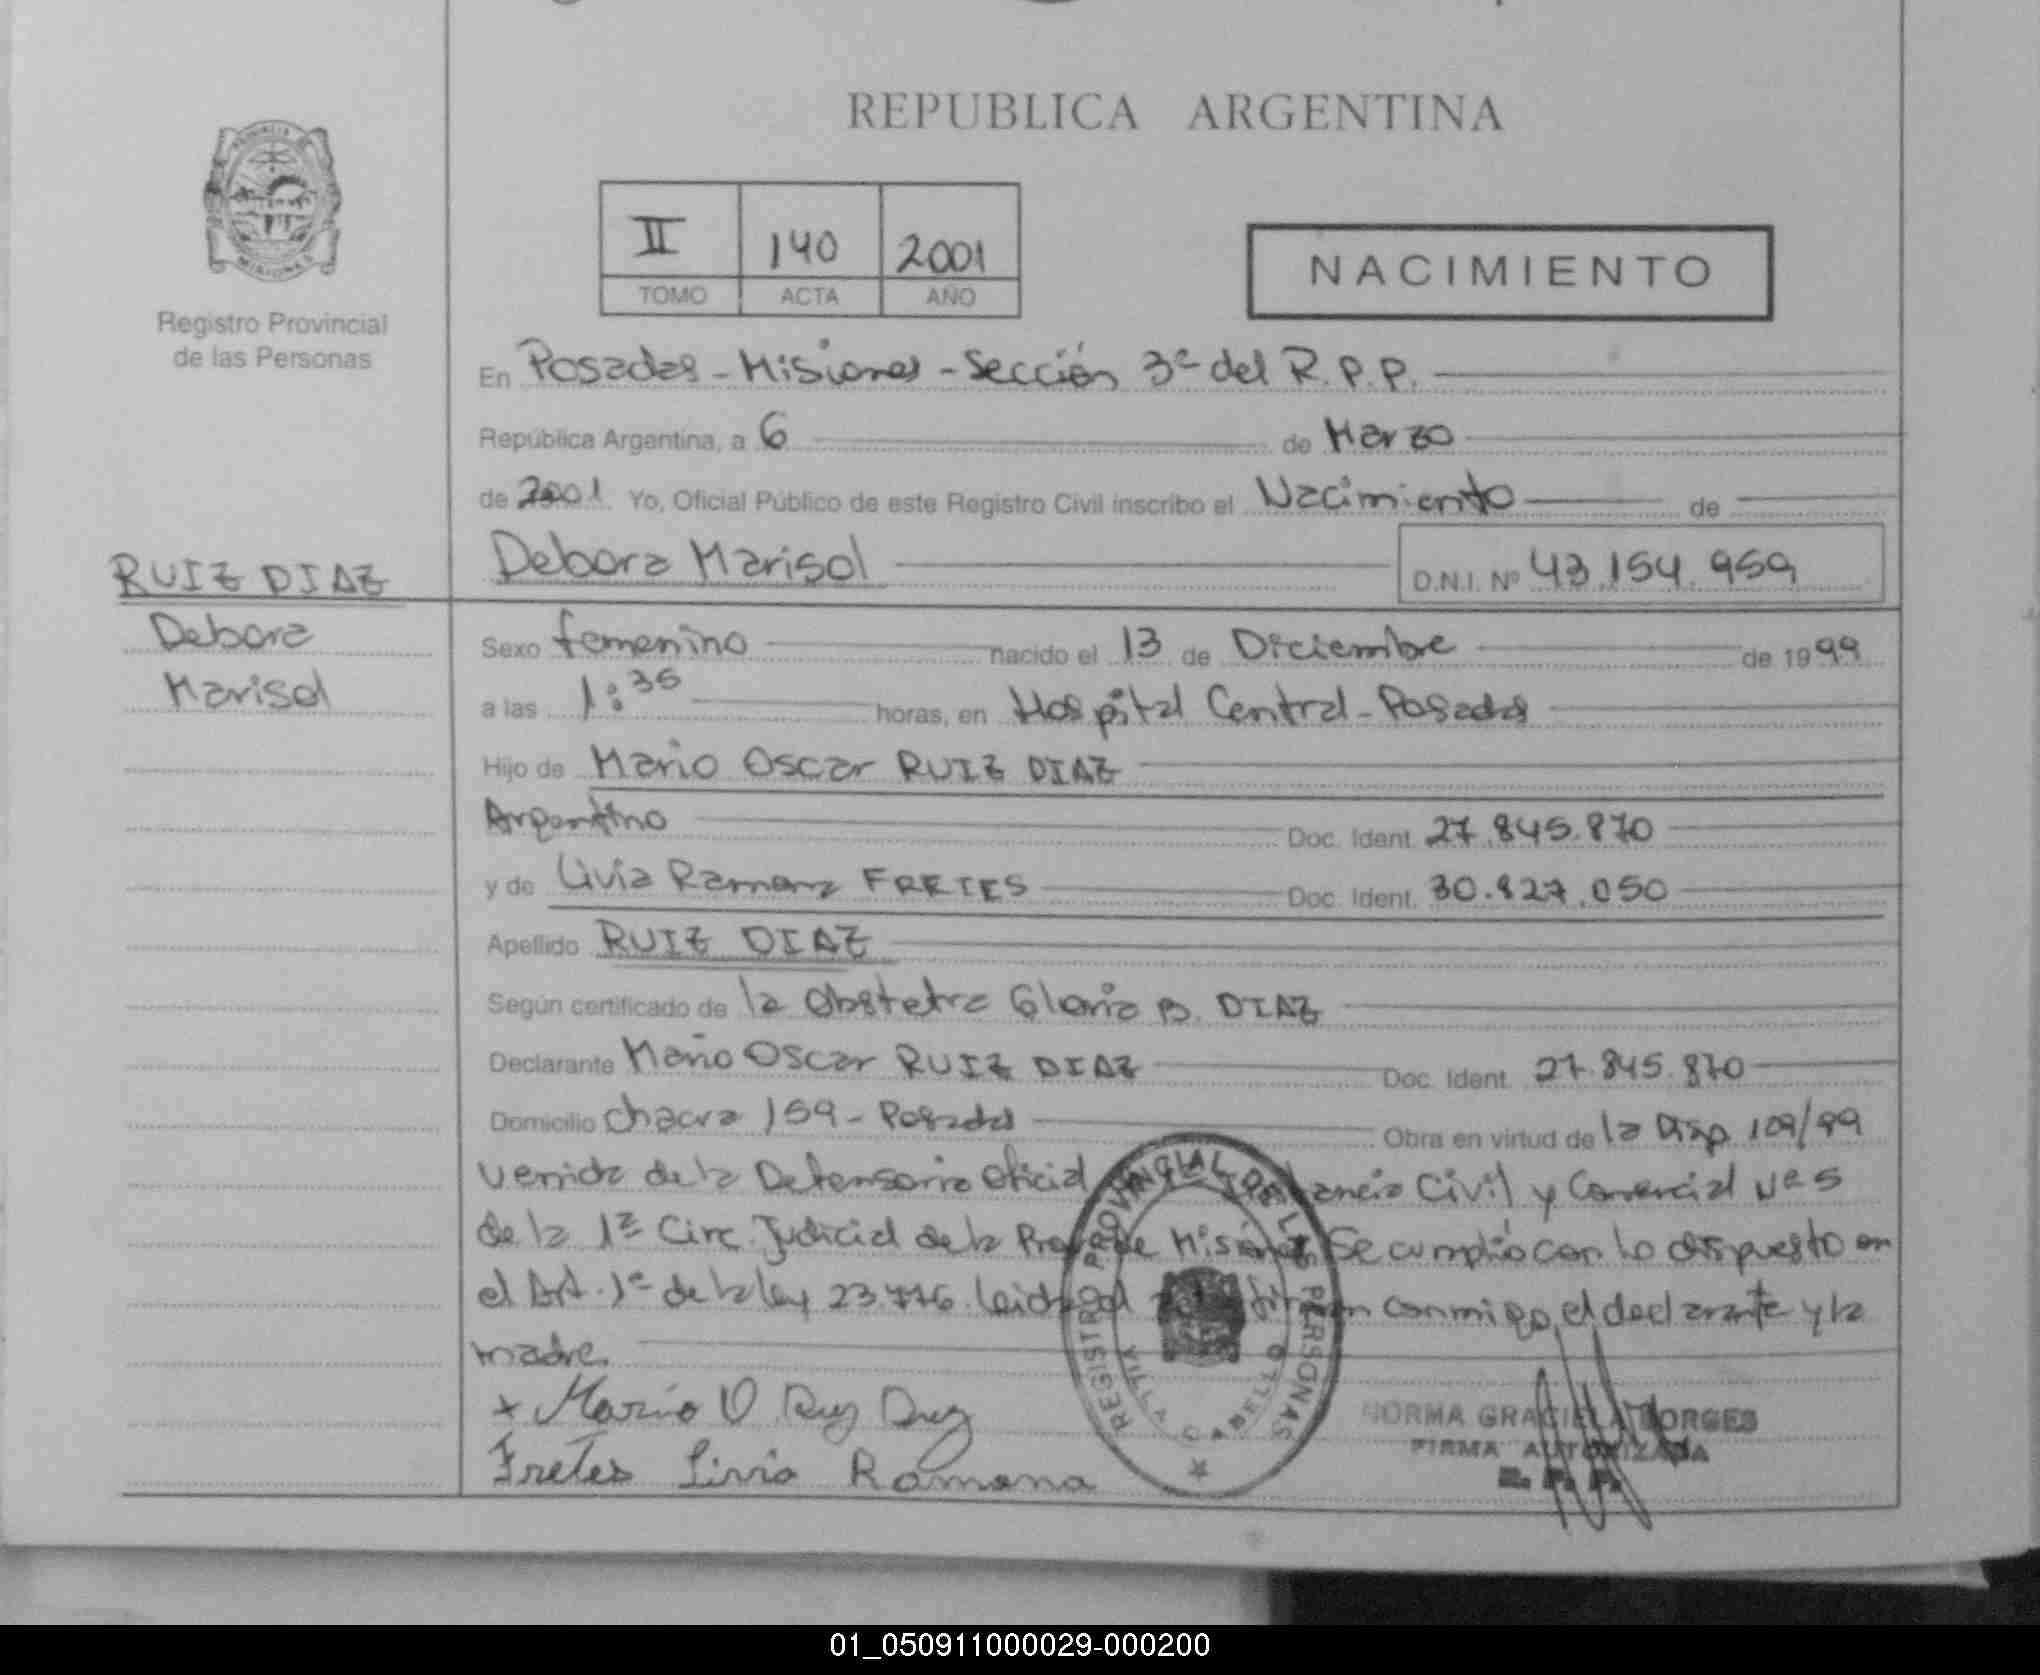 REPUBLICA ARGENTINA
II 140 2001
TOMO ACTA AÑO
NACIMIENTO
PROVINCIA DE MISIONES
Registro Provincial
de las Personas
En Posadas - Misiones - Sección 3ª del R.P.P.
República Argentina, a 6 de Marzo
de 2001 Yo, Oficial Público de este Registro Civil inscribo el Nacimiento de
Debora Marisol D.N.I. Nº 43.154.959
RUIZ DIAZ
Debora
Marisol
Sexo femenino nacido el 13 de Diciembre de 1999
a las 1:35 horas, en Hospital Central - Posadas
Hijo de Mario Oscar RUIZ DIAZ
Argentino Doc. Ident. 27.845.870
y de Livia Ramona FRETES Doc. Ident. 30.827.050
Apellido RUIZ DIAZ
Según certificado de la Obstetra Gloria B. DIAZ
Declarante Mario Oscar RUIZ DIAZ Doc. Ident. 27.845.870
Domicilio Chacra 159 - Posadas Obra en virtud de la Disp. 109/99
venida de la Defensoria Oficial Civil y Comercial Nº 5
de la 1ª Circ. Judicial de la Prov. de Misiones. Se cumplió con lo dispuesto en
el Art. 1º de la ley 23.776. Leida el conmigo, el declarante y la
madre.
+ Mario O Ruiz Diaz
Fretes Livia Ramona
REGISTRO PROVINCIAL DE LAS PERSONAS
VILLA CABELLO
NORMA GRACIELA BORGES
FIRMA AUTORIZADA
R. P. P.
01_050911000029-000200